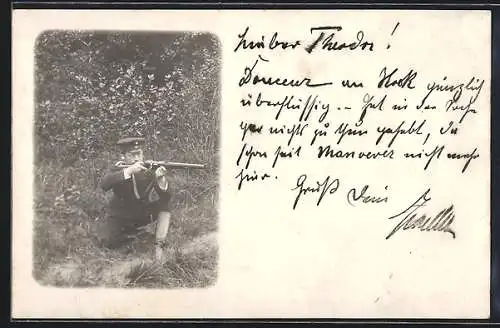 Lieber Theodor!
an Hock gänzlich
überflüssig. - Hat in der Sache
gar nichts zu thun gehabt, da
schon seit Manoever nicht mehr
hier. Gruß Dein